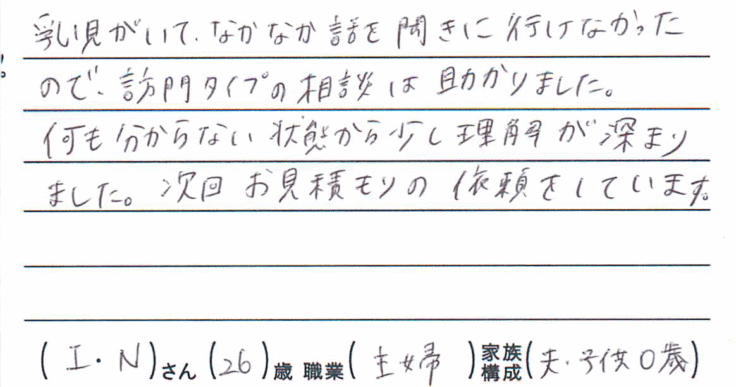 乳児がいて、なかなか話を聞きに行けなかった
ので、訪問タイプの相談は助かりました。
何も分からない状態から少し理解が深まり
ました。次回お見積もりの依頼をしています。
(I・N)さん(26)歳 職業(主婦)家族構成(夫・子供0歳)